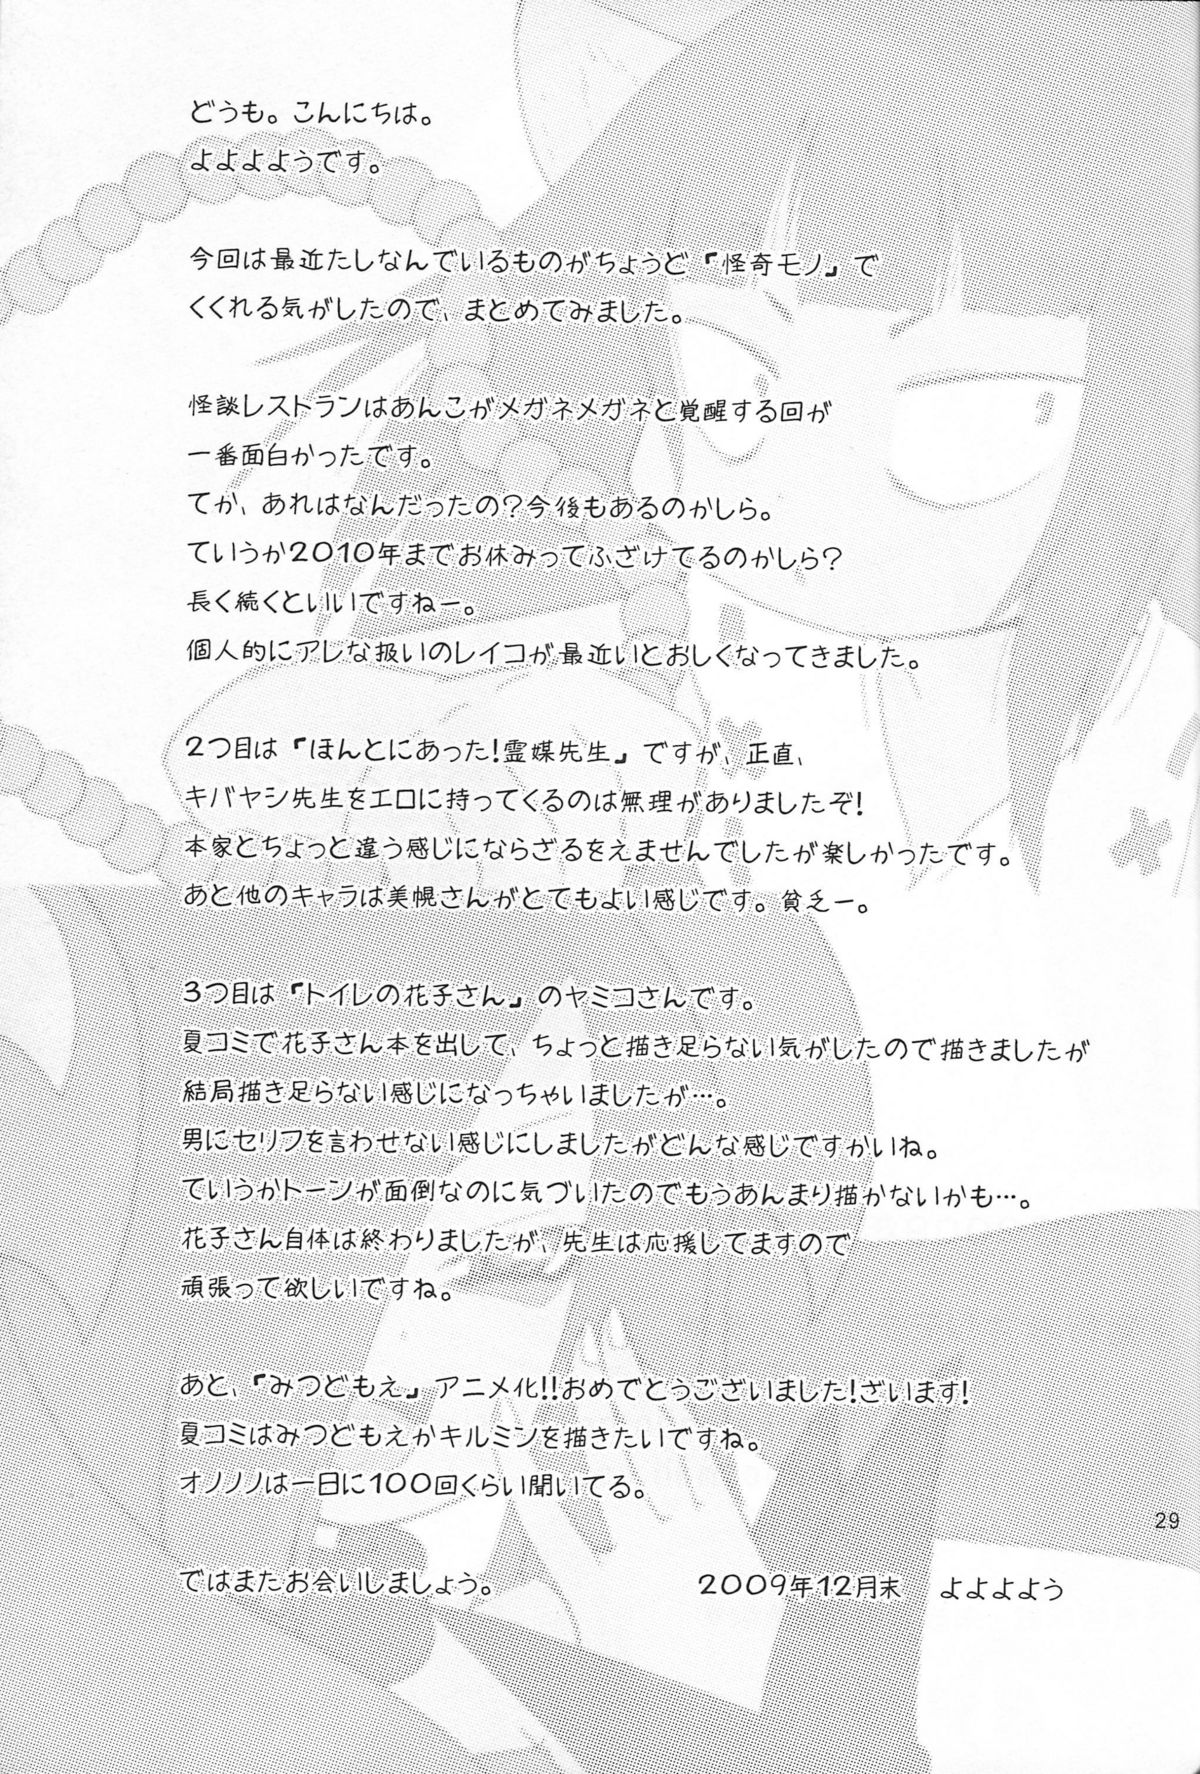 どうも。こんにちは。
よよよようです。
今回は最近たしなんでいるものがちょうど「怪奇モノ」で
くくれる気がしたので、まとめてみました。
怪談レストランはあんこがメガネメガネと覚醒する回が
一番面白かったです。
てか、あれはなんだったの?今後もあるのかしら。
ていうか2010年までお休みってふざけてるのかしら?
長く続くといいですねー。
個人的にアレな扱いのレイコが最近いとおしくなってきました。
2つ目は「ほんとにあった!霊媒先生」ですが、正直、
キバヤシ先生をエロに持ってくるのは無理がありましたぞ!
本家とちょっと違う感じにならざるをえませんでしたが楽しかったです。
あと他のキャラは美幌さんがとてもよい感じです。貧乏ー。
3つ目は「トイレの花子さん」のヤミコさんです。
夏コミで花子さん本を出して、ちょっと描き足らない気がしたので描きましたが
結局描き足らない感じになっちゃいましたが…。
男にセリフを言わせない感じにしましたがどんな感じですかいね。
ていうかトーンが面倒なのに気づいたのでもうあんまり描かないかも…。
花子さん自体は終わりましたが、先生は応援してますので
頑張って欲しいですね。
あと、「みつどもえ」アニメ化!!おめでとうございました!ざいます!
夏コミはみつどもえかキルミンを描きたいですね。
オノノノは一日に100回くらい聞いてる。
ではまたお会いしましょう。 2009年12月末 よよよよう
29